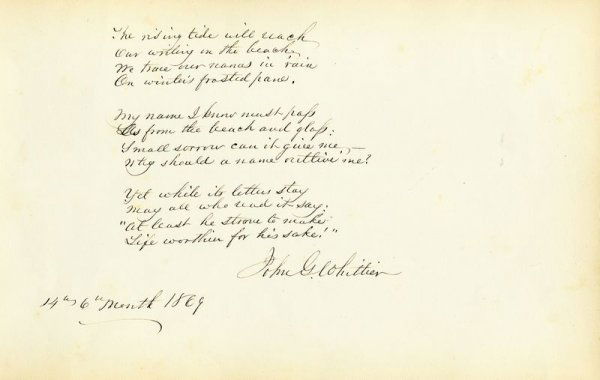 The rising tide will reach
Our writing in the beach,
We trace our names in vain
On winter's frosted pane.
My name I know must pass
As from the beach and glass:
Small sorrow can it give me,—
Why should a name outlive me?
Yet while its letters stay
May all who read it say:
"At least he strove to make
Life worthier for his sake!"
John G. Whittier
14th 6th Month 1869